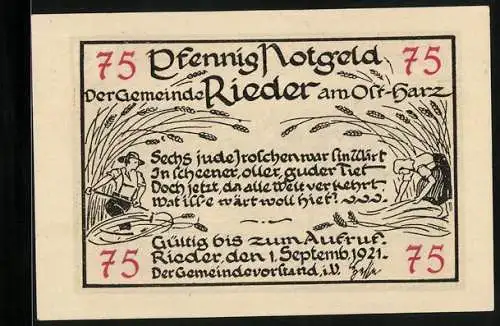 75 Pfennig Notgeld 75
Der Gemeinde Rieder am Ost-Harz
Sechs jude Jroschen war sin Wärt
In scheener, oller, guder Tiet
Doch jetzt, da alle Welt verkehrt
Wat iss e wärt woll hiet?
Gültig bis zum Aufruf.
Rieder, den 1. Septemb. 1921.
75 Der Gemeindevorstand, i.V. 75